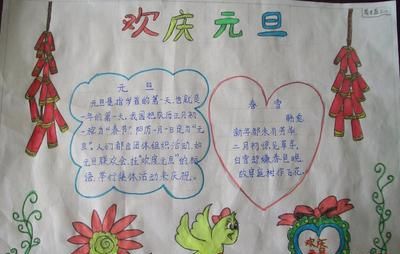 欢庆元旦
元 旦
元旦是指岁首的第一天,也就是
一年的第一天,我国把农历正月初
一称为“春节”,阳历一月一日定为“元
旦”,人们都由团体组织活动,如
元旦联欢会,挂“欢度元旦”的标
语,举行集体活动来庆祝。
春雪
韩愈
新年都未有芳华,
二月初惊见草芽。
白雪却嫌春色晚,
故穿庭树作飞花。
欢庆